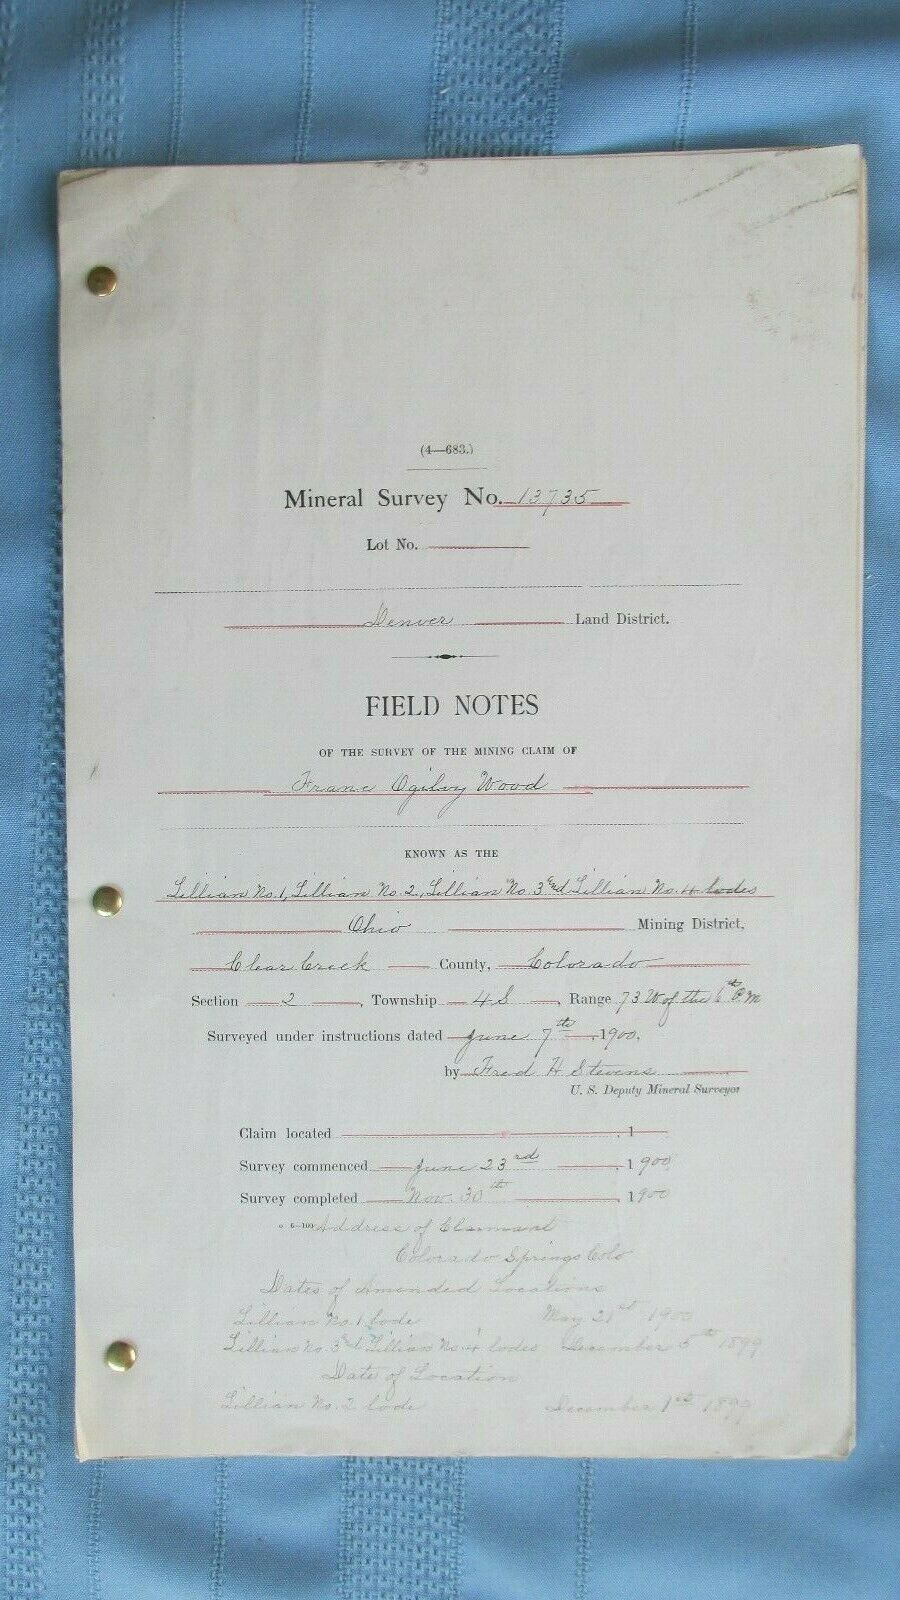 (4—683.)
Mineral Survey No. 13735
Lot No.
Denver Land District.
FIELD NOTES
OF THE SURVEY OF THE MINING CLAIM OF
Franc Ogilvy Wood
KNOWN AS THE
Lillian No. 1, Lillian No. 2, Lillian No. 3 and Lillian No. 4 lodes
Ohio Mining District,
Clear Creek County, Colorado
Section 2, Township 4 S, Range 73 W of the 6th P.M
Surveyed under instructions dated June 7th, 1900,
by Fred H Stevens
U. S. Deputy Mineral Surveyor
Claim located , 1
Survey commenced June 23rd, 1900
Survey completed Nov. 30th, 1900
6—100 Address of Claimant
Colorado Springs Colo
Dates of Amended Locations
Lillian No. 1 lode May 21st 1900
Lillian No. 3 and Lillian No. 4 lodes December 5th 1899
Date of Location
Lillian No. 2 lode December 1st 1899